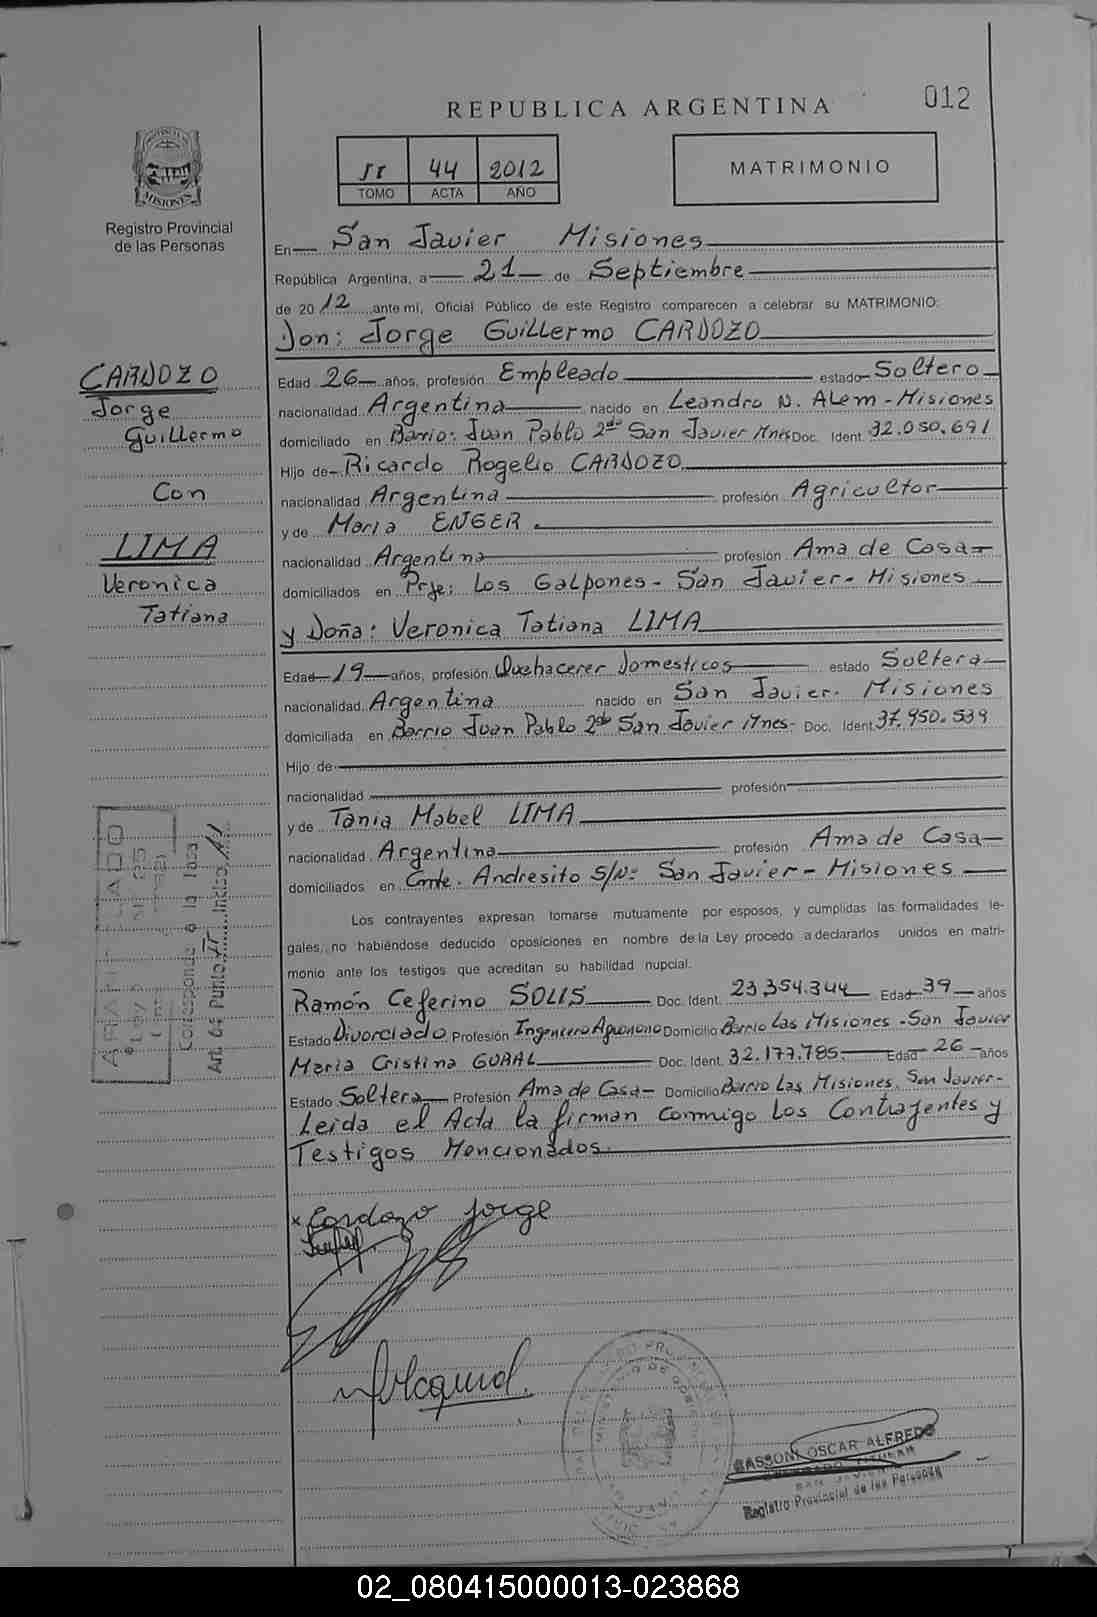 012
REPUBLICA ARGENTINA
44 2012
TOMO ACTA AÑO
MATRIMONIO
MISIONES
Registro Provincial
de las Personas
En San Javier Misiones
República Argentina, a 21 de Septiembre
de 2012 ante mi, Oficial Público de este Registro comparecen a celebrar su MATRIMONIO:
Don: Jorge Guillermo CARDOZO
CARDOZO
Jorge
Guillermo
Con
LIMA
Veronica
Tatiana
Edad 26 años, profesión Empleado estado Soltero
nacionalidad Argentina nacido en Leandro N. Alem - Misiones
domiciliado en Barrio: Juan Pablo 2do San Javier Mnes Doc. Ident. 32.050.691
Hijo de Ricardo Rogelio CARDOZO
nacionalidad Argentina profesión Agricultor
y de Maria ENGER
nacionalidad Argentina profesión Ama de Casa
domiciliados en Prje: Los Galpones - San Javier - Misiones
y Doña: Veronica Tatiana LIMA
Edad 19 años, profesión Quehacerer Domesticos estado Soltera
nacionalidad Argentina nacido en San Javier - Misiones
domiciliada en Barrio Juan Pablo 2do San Javier Mnes - Doc. Ident. 37.950.539
Hijo de
nacionalidad profesión
y de Tania Mabel LIMA
nacionalidad Argentina profesión Ama de Casa
domiciliados en Cmte. Andresito S/Nº San Javier - Misiones
Corresponde a la Tasa
Art. 6º Punto VI Inciso
Los contrayentes expresan tomarse mutuamente por esposos, y cumplidas las formalidades le-
gales, no habiéndose deducido oposiciones en nombre de la Ley procedo a declararlos unidos en matri-
monio ante los testigos que acreditan su habilidad nupcial.
Ramón Ceferino SOLIS Doc. Ident. 23.354.344 Edad 39 años
Estado Divorciado Profesión Ingeniero Agronono Domicilio Barrio Las Misiones - San Javier
Maria Cristina GURAL Doc. Ident. 32.177.785 Edad 26 años
Estado Soltera Profesión Ama de Casa Domicilio Barrio Las Misiones. San Javier -
Leida el Acta la firman conmigo Los Contrayentes y
Testigos Mencionados.
x Cardozo Jorge
SASSON OSCAR ALFREDO
SAN JAVIER
Registro Provincial de las Personas
02_080415000013-023868